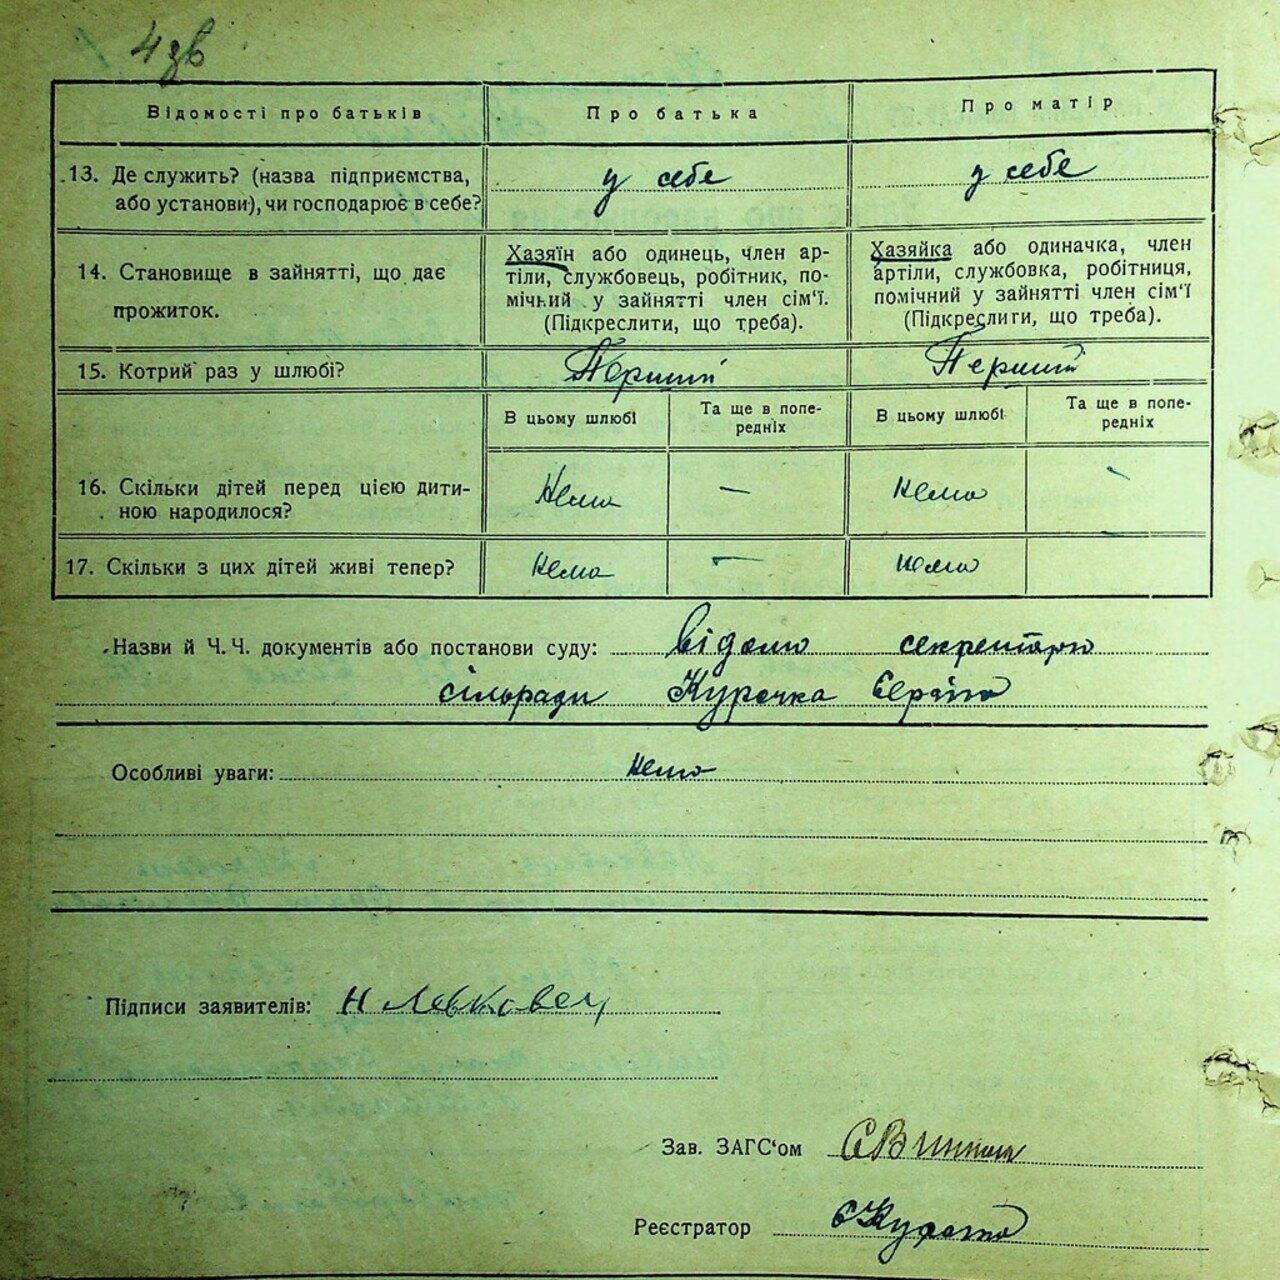 4 зв
Відомості про батьків
Про батька
Про матір
13. Де служить? (назва підприємства,
або установи), чи господарює в себе?
у себе
у себе
14. Становище в зайнятті, що дає
прожиток.
Хазяїн або одинець, член ар-
тіли, службовець, робітник, по-
мічний у зайнятті член сім'ї.
(Підкреслити, що треба).
Хазяйка або одиначка, член
артіли, службовка, робітниця,
помічний у зайнятті член сім'ї
(Підкреслити, що треба).
15. Котрий раз у шлюбі?
Перший
Перший
В цьому шлюбі
Та ще в попе-
редніх
В цьому шлюбі
Та ще в попе-
редніх
16. Скільки дітей перед цією дити-
ною народилося?
Нема
—
Нема
—
17. Скільки з цих дітей живі тепер?
Нема
—
Нема
—
Назви й Ч. Ч. документів або постанови суду: відомо секретарю
сільради Курочка
Особливі уваги: нема
Підписи заявителів: Н Левковец
Зав. ЗАГС'ом
Реєстратор